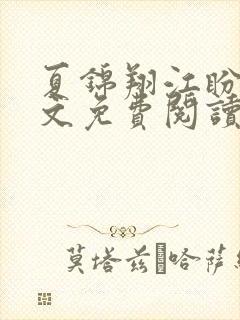 夏錦翔江盼
文免費閱讀
莫塔兹·哈萨